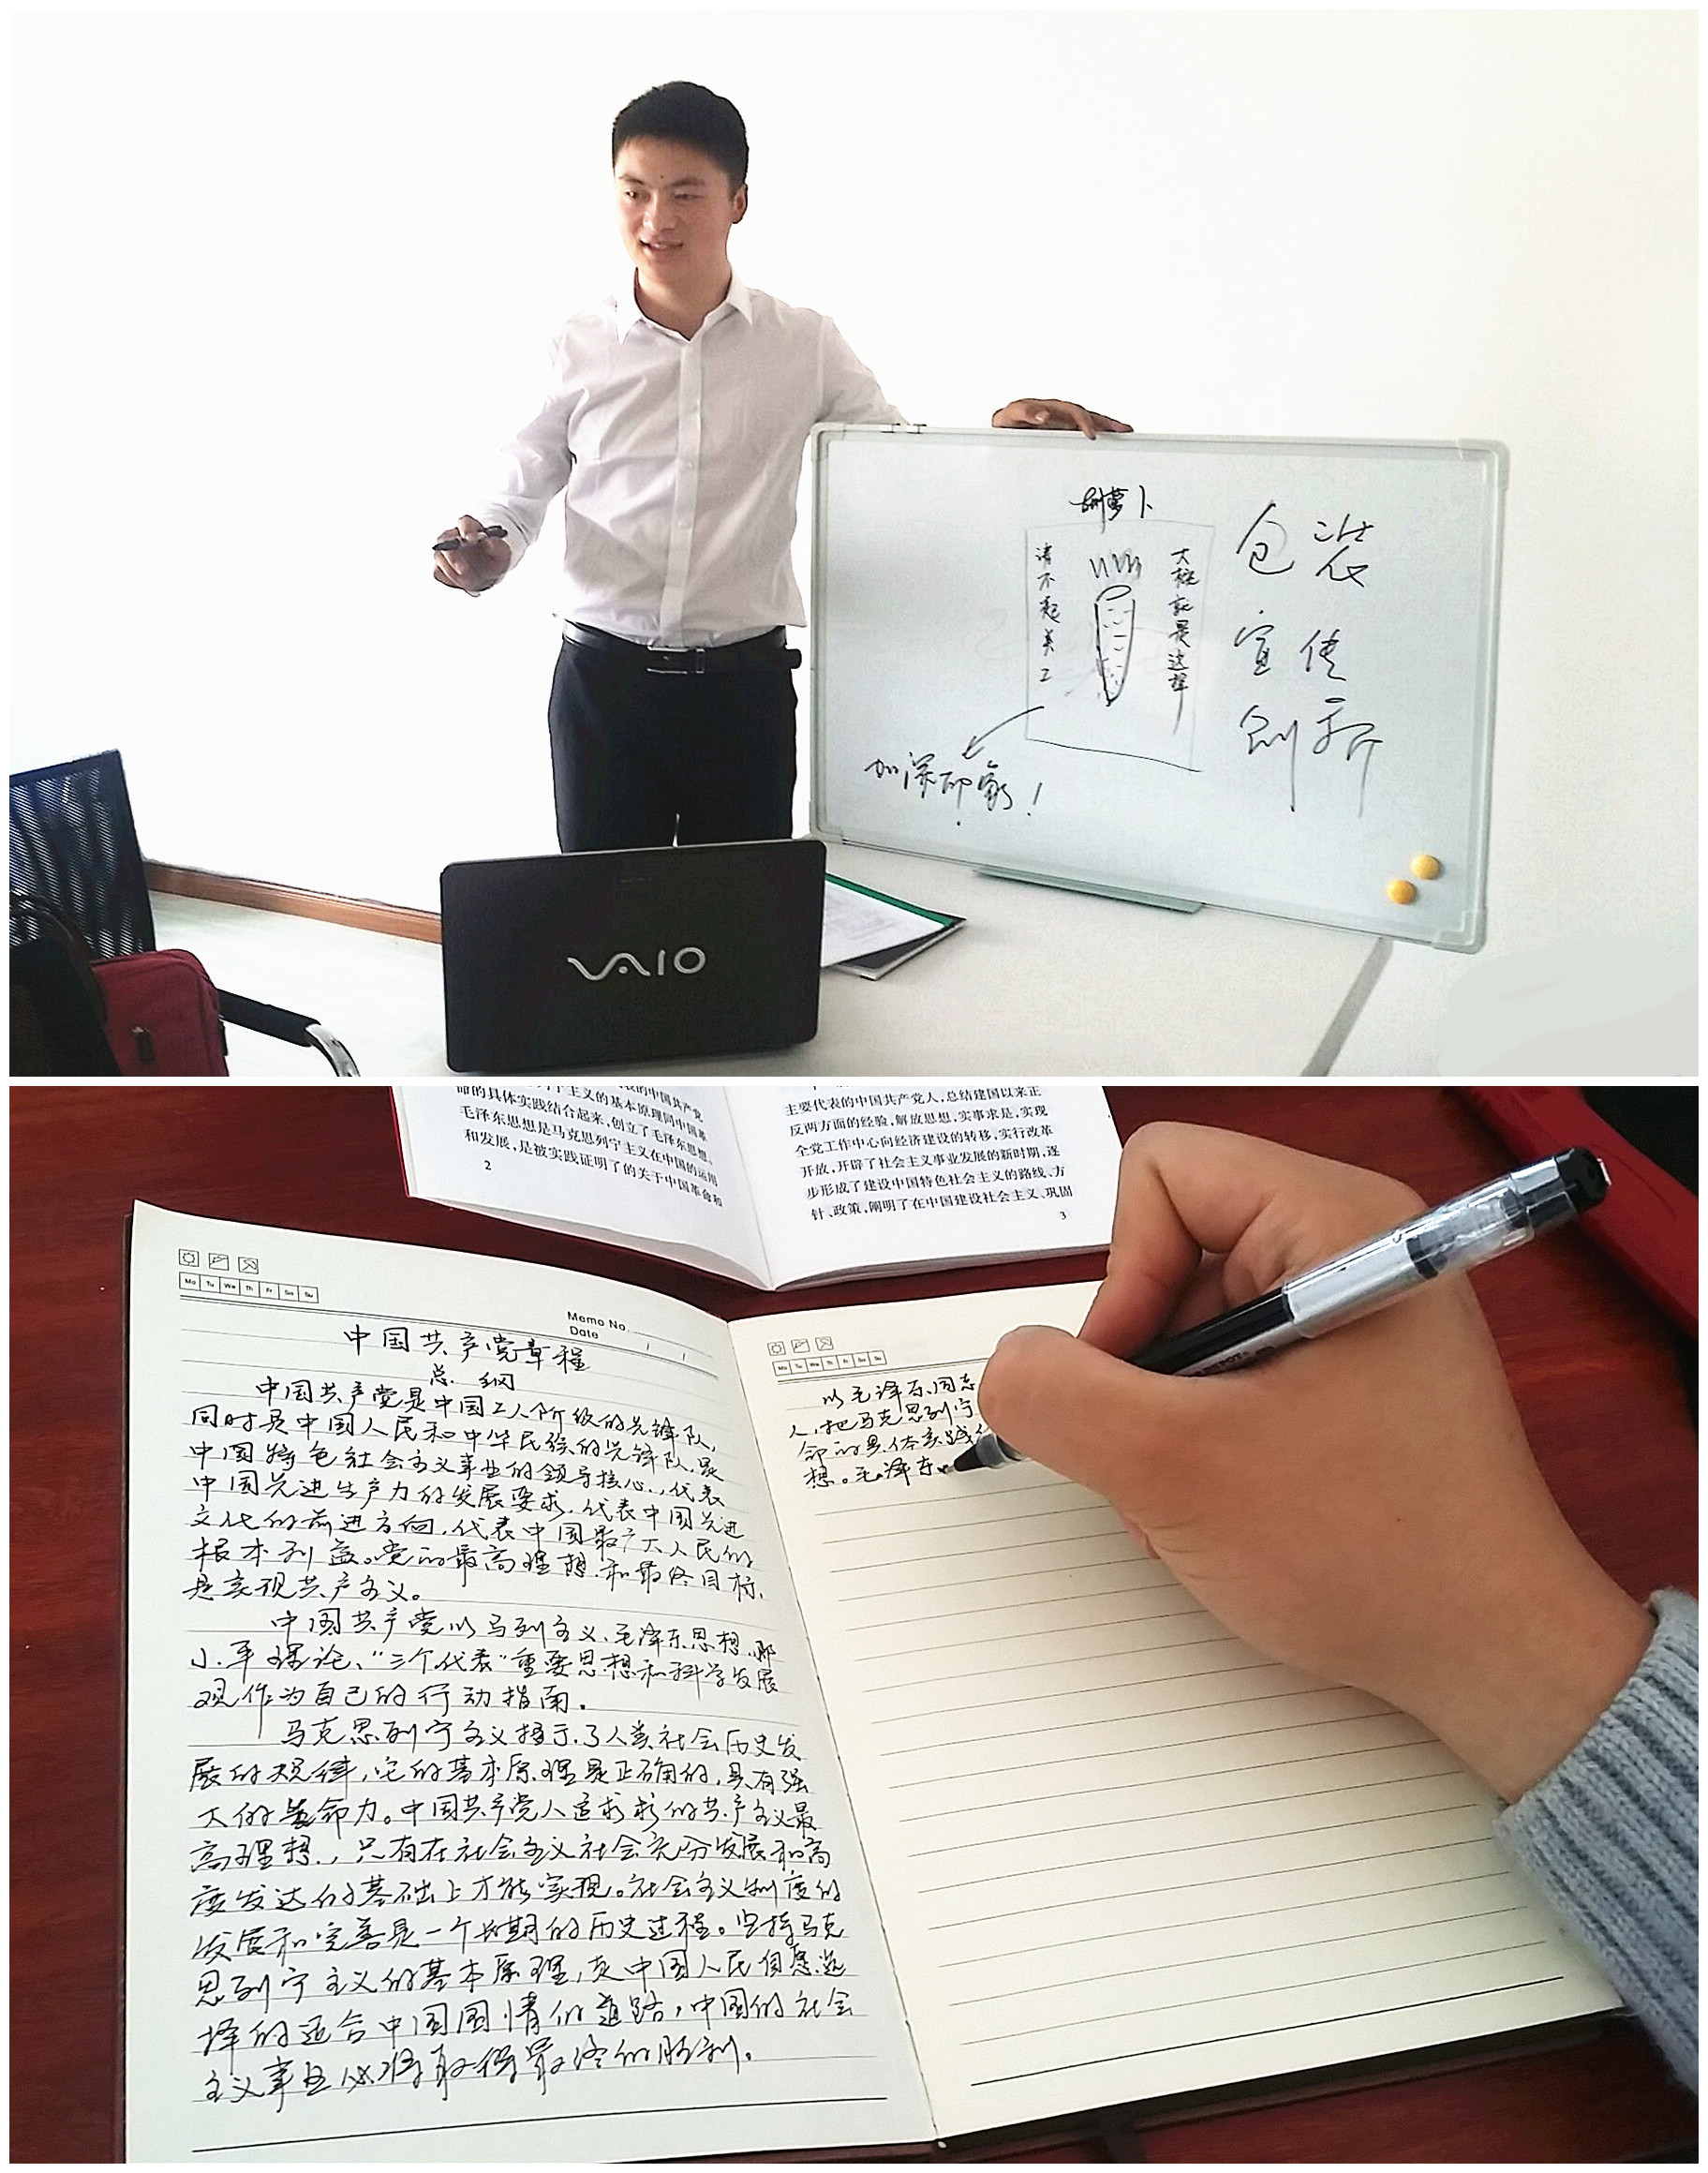 胡萝卜
请不起美工
大概就是这样
包装
宣传
创新
加深印象!
VAIO
主义的基本原理同中国革
命的具体实践结合起来,创立了毛泽东思想。
毛泽东思想是马克思列宁主义在中国的运用
和发展,是被实践证明了的关于中国革命和
2
主要代表的中国共产党人,总结建国以来正
反两方面的经验,解放思想,实事求是,实现
全党工作中心向经济建设的转移,实行改革
开放,开辟了社会主义事业发展的新时期,逐
步形成了建设中国特色社会主义的路线、方
针、政策,阐明了在中国建设社会主义、巩固
3
Mo Tu We Th Fr Sa Su
Memo No.
Date
中国共产党章程
总纲
中国共产党是中国工人阶级的先锋队,
同时是中国人民和中华民族的先锋队,是
中国特色社会主义事业的领导核心,代表
中国先进生产力的发展要求,代表中国先进
文化的前进方向,代表中国最广大人民的
根本利益。党的最高理想和最终目标,
是实现共产主义。
中国共产党以马列主义、毛泽东思想、邓
小平理论、“三个代表”重要思想和科学发展
观作为自己的行动指南。
马克思列宁主义揭示了人类社会历史发
展的规律,它的基本原理是正确的,具有强
大的生命力。中国共产党人追求的共产主义最
高理想,只有在社会主义社会充分发展和高
度发达的基础上才能实现。社会主义制度的
发展和完善是一个长期的历史过程。坚持马克
思列宁主义的基本原理,走中国人民自愿选
择的适合中国国情的道路,中国的社会
主义事业必将取得最终的胜利。
Mo Tu We Th Fr Sa Su
以毛泽东同志
人,把马克思列宁
命的具体实践
想。毛泽东